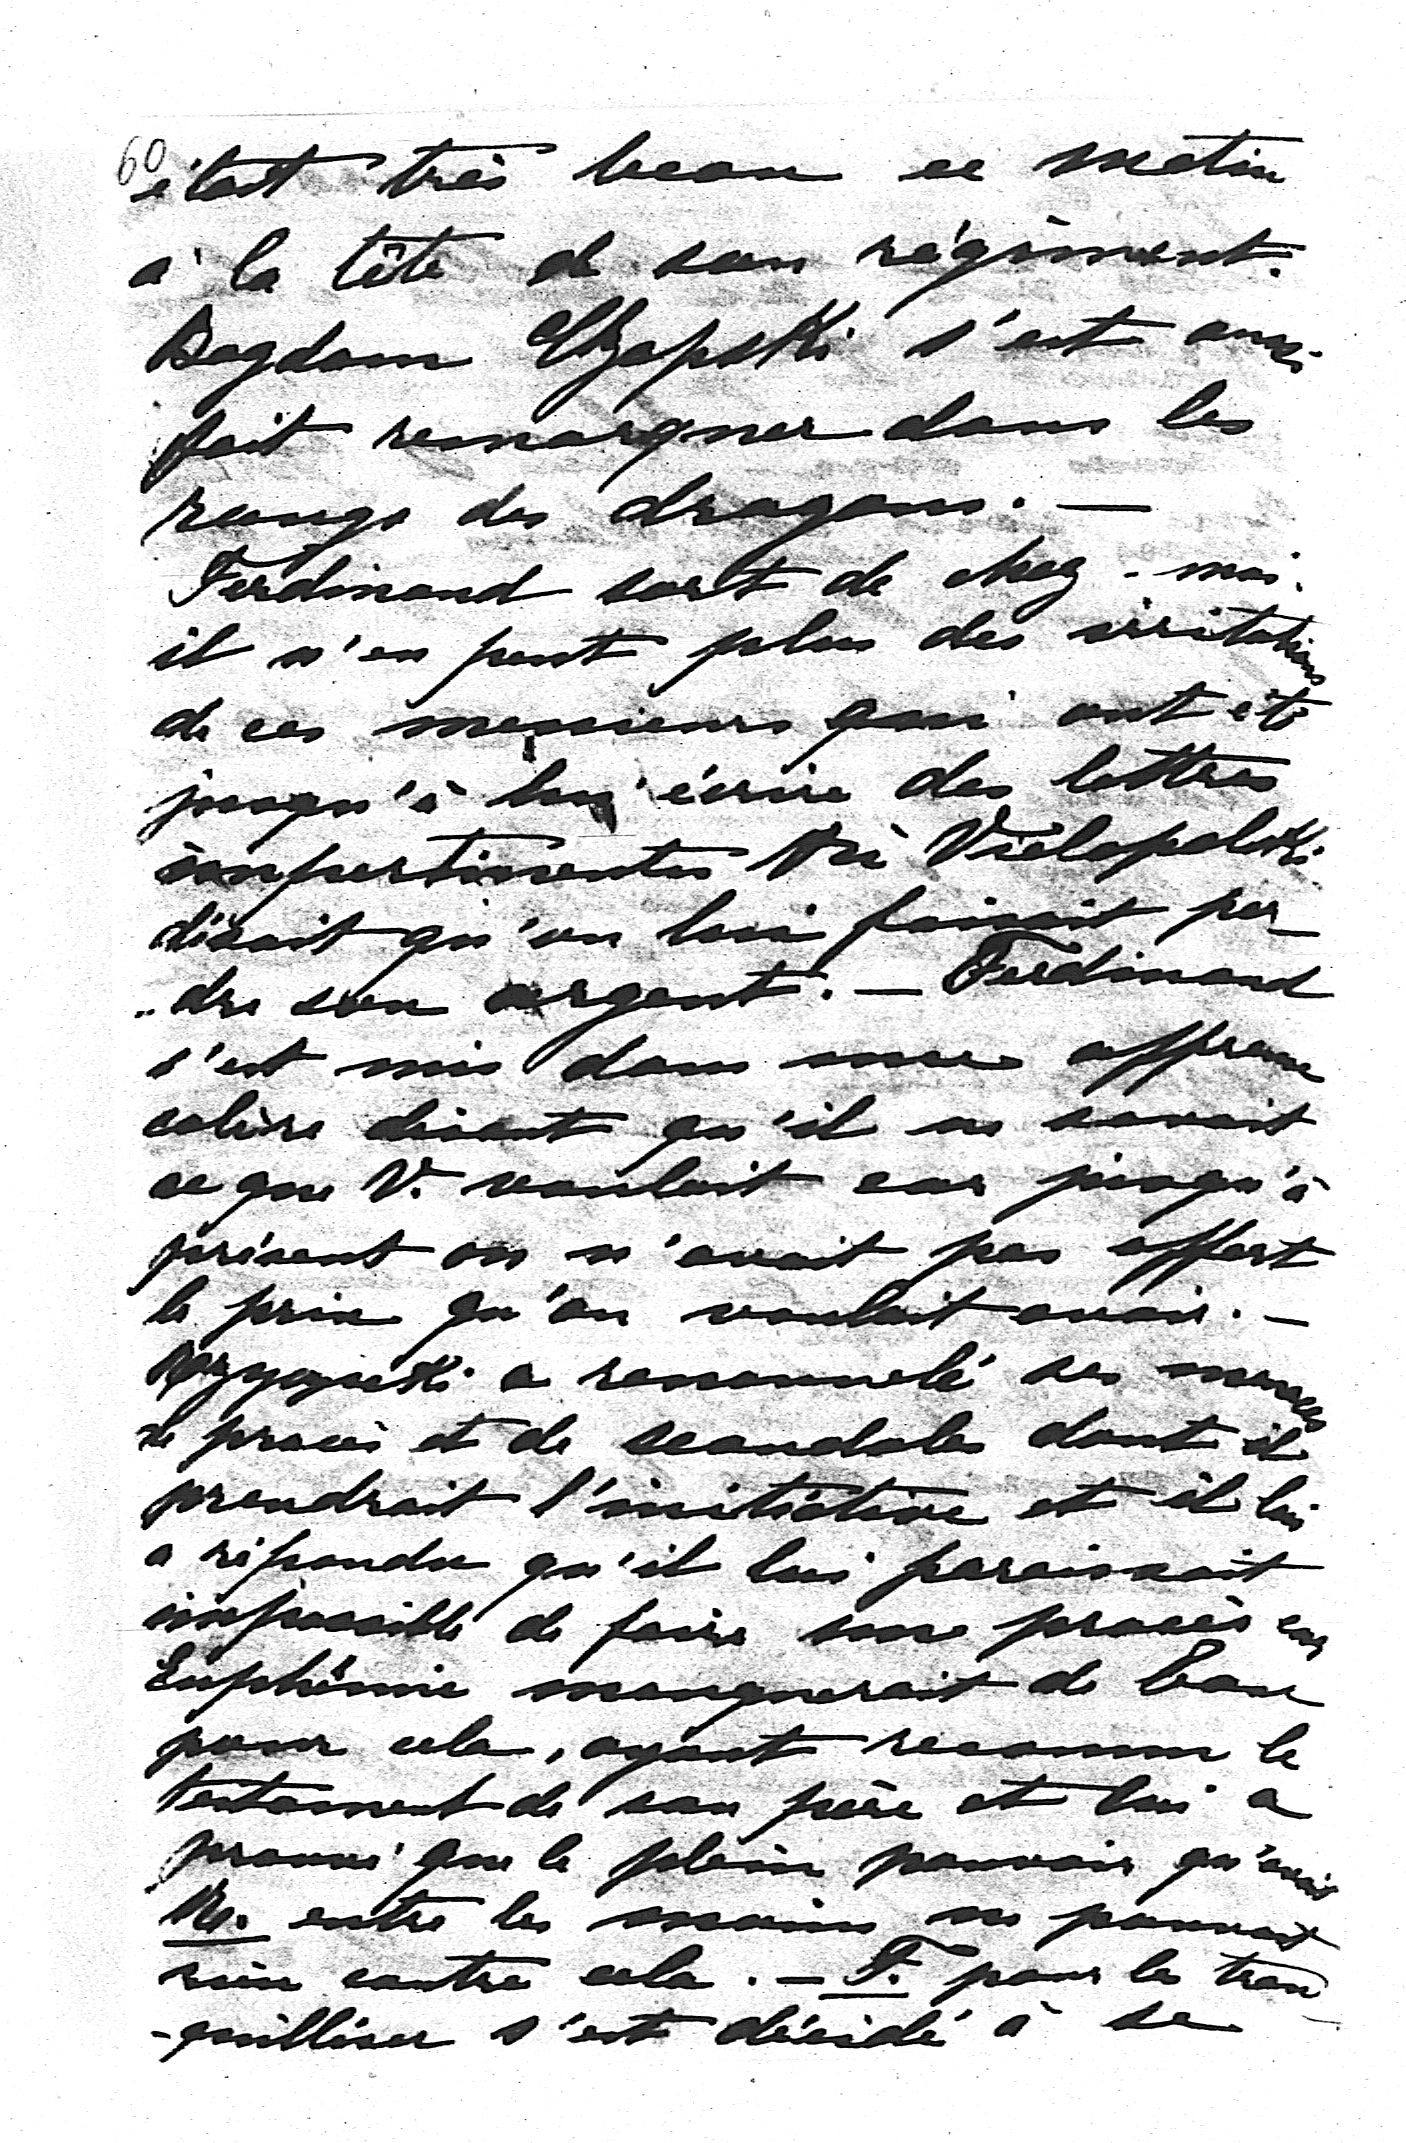 60
était très beau ce matin
à la tête de son régiment.
Bogdam Czapski s'est aussi
fait remarquer dans les
rangs des dragons. —
Ferdinand sort de chez-moi.
il n'en peut plus des irritations
de ces messieurs qui ont été
jusqu'à lui écrire des lettres
impertinentes Vielopolski
disait qu'on lui faisait per_
..dre son argent. — Ferdinand
s'est mis dans une affreuse
colère disant qu'il ne savait
ce que V. voulait car jusqu'à
présent on n'avait pas offert
le prix qu'on voulait avoir. —
a renouvelé ses menaces
de procès et de scandales dont il
prendrait l'initiative et il lui
a répondu qu'il lui paraissait
impossible de faire un procès car
Euphémie manquerait de base
pour cela, ayant reconnu le
testament de son père et lui a
prouvé que le plein pouvoir qu'avait
entre les mains ne pouvait
rien contre cela. — F. pour les tran
-quilliser s'est décidé à se